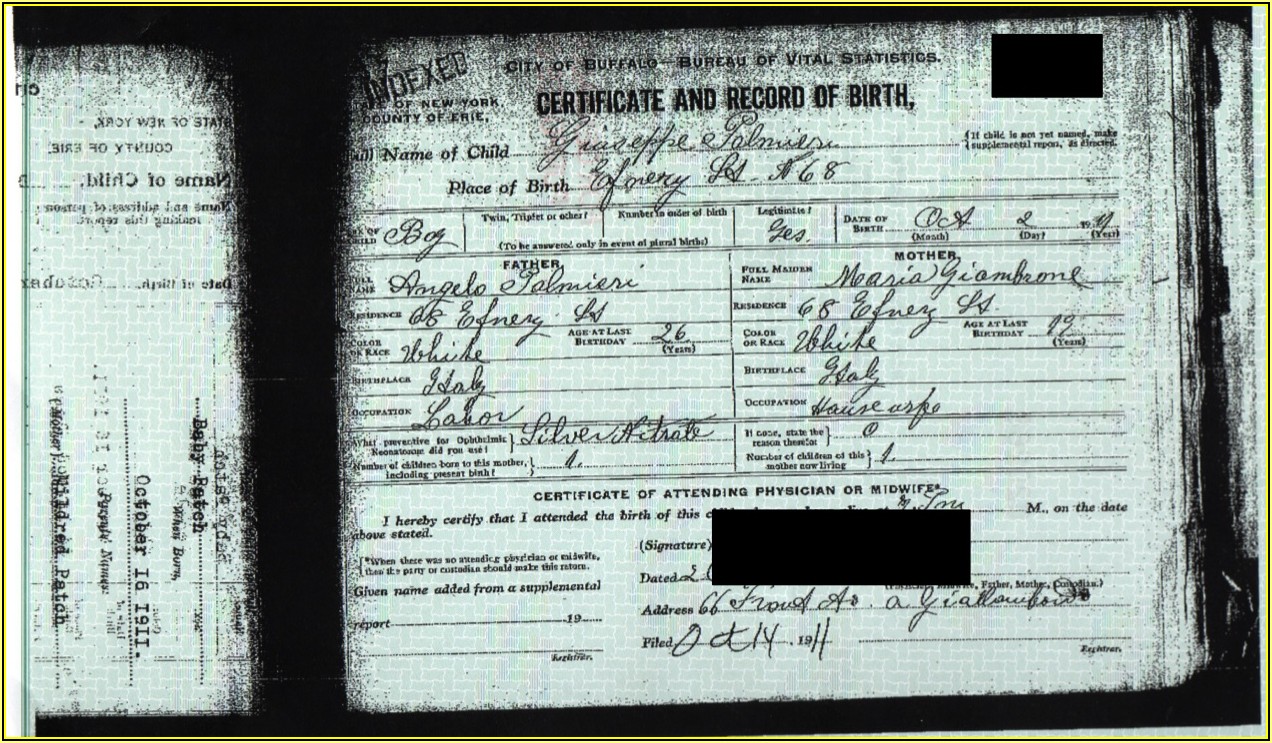 INDEXED
CITY OF BUFFALO—BUREAU OF VITAL STATISTICS.
OF NEW YORK,
COUNTY OF ERIE,
CERTIFICATE AND RECORD OF BIRTH,
Name of Child Giuseppe Palmieri
{If child is not yet named, make supplemental report, as directed.
Place of Birth Efnery St. N 68
Boy
Twin, Triplet or other?
Number in order of birth
(To be answered only in event of plural births)
Legitimate?
Yes.
DATE OF BIRTH Oct 2 19
(Month) (Day) (Year)
FATHER
MOTHER
Angelo Palmieri
FULL MAIDEN NAME Maria Giambrone
RESIDENCE 68 Efnery St
RESIDENCE 68 Efnery St.
COLOR OR RACE White
AGE AT LAST BIRTHDAY 26 (Years)
COLOR OR RACE White
AGE AT LAST BIRTHDAY 19 (Years)
BIRTHPLACE Italy
BIRTHPLACE Italy
OCCUPATION Labor
OCCUPATION
What preventive for Ophthalmia Neonatorum did you use? } Silver Nitrate
If none, state the reason therefor } 0
Number of children born to this mother, including present birth? } 1.
Number of children of this mother now living } 1.
CERTIFICATE OF ATTENDING PHYSICIAN OR MIDWIFE*
I hereby certify that I attended the birth of this M., on the date
above stated.
{*When there was no attending physician or midwife, then the party or custodian should make this return.
(Signature)
Dated 2
Father, Mother, Custodian.)
Given name added from a supplemental
report 19
Registrar.
Address 66 Front Av.
Filed Oct 14 1911
Registrar.
STATE OF NEW YORK,
COUNTY OF ERIE.
Name of Child,
Name and address of person making this report.
Date of Birth, October
Baby Patch
When Born,
October 16 1911.
Mildred Patch